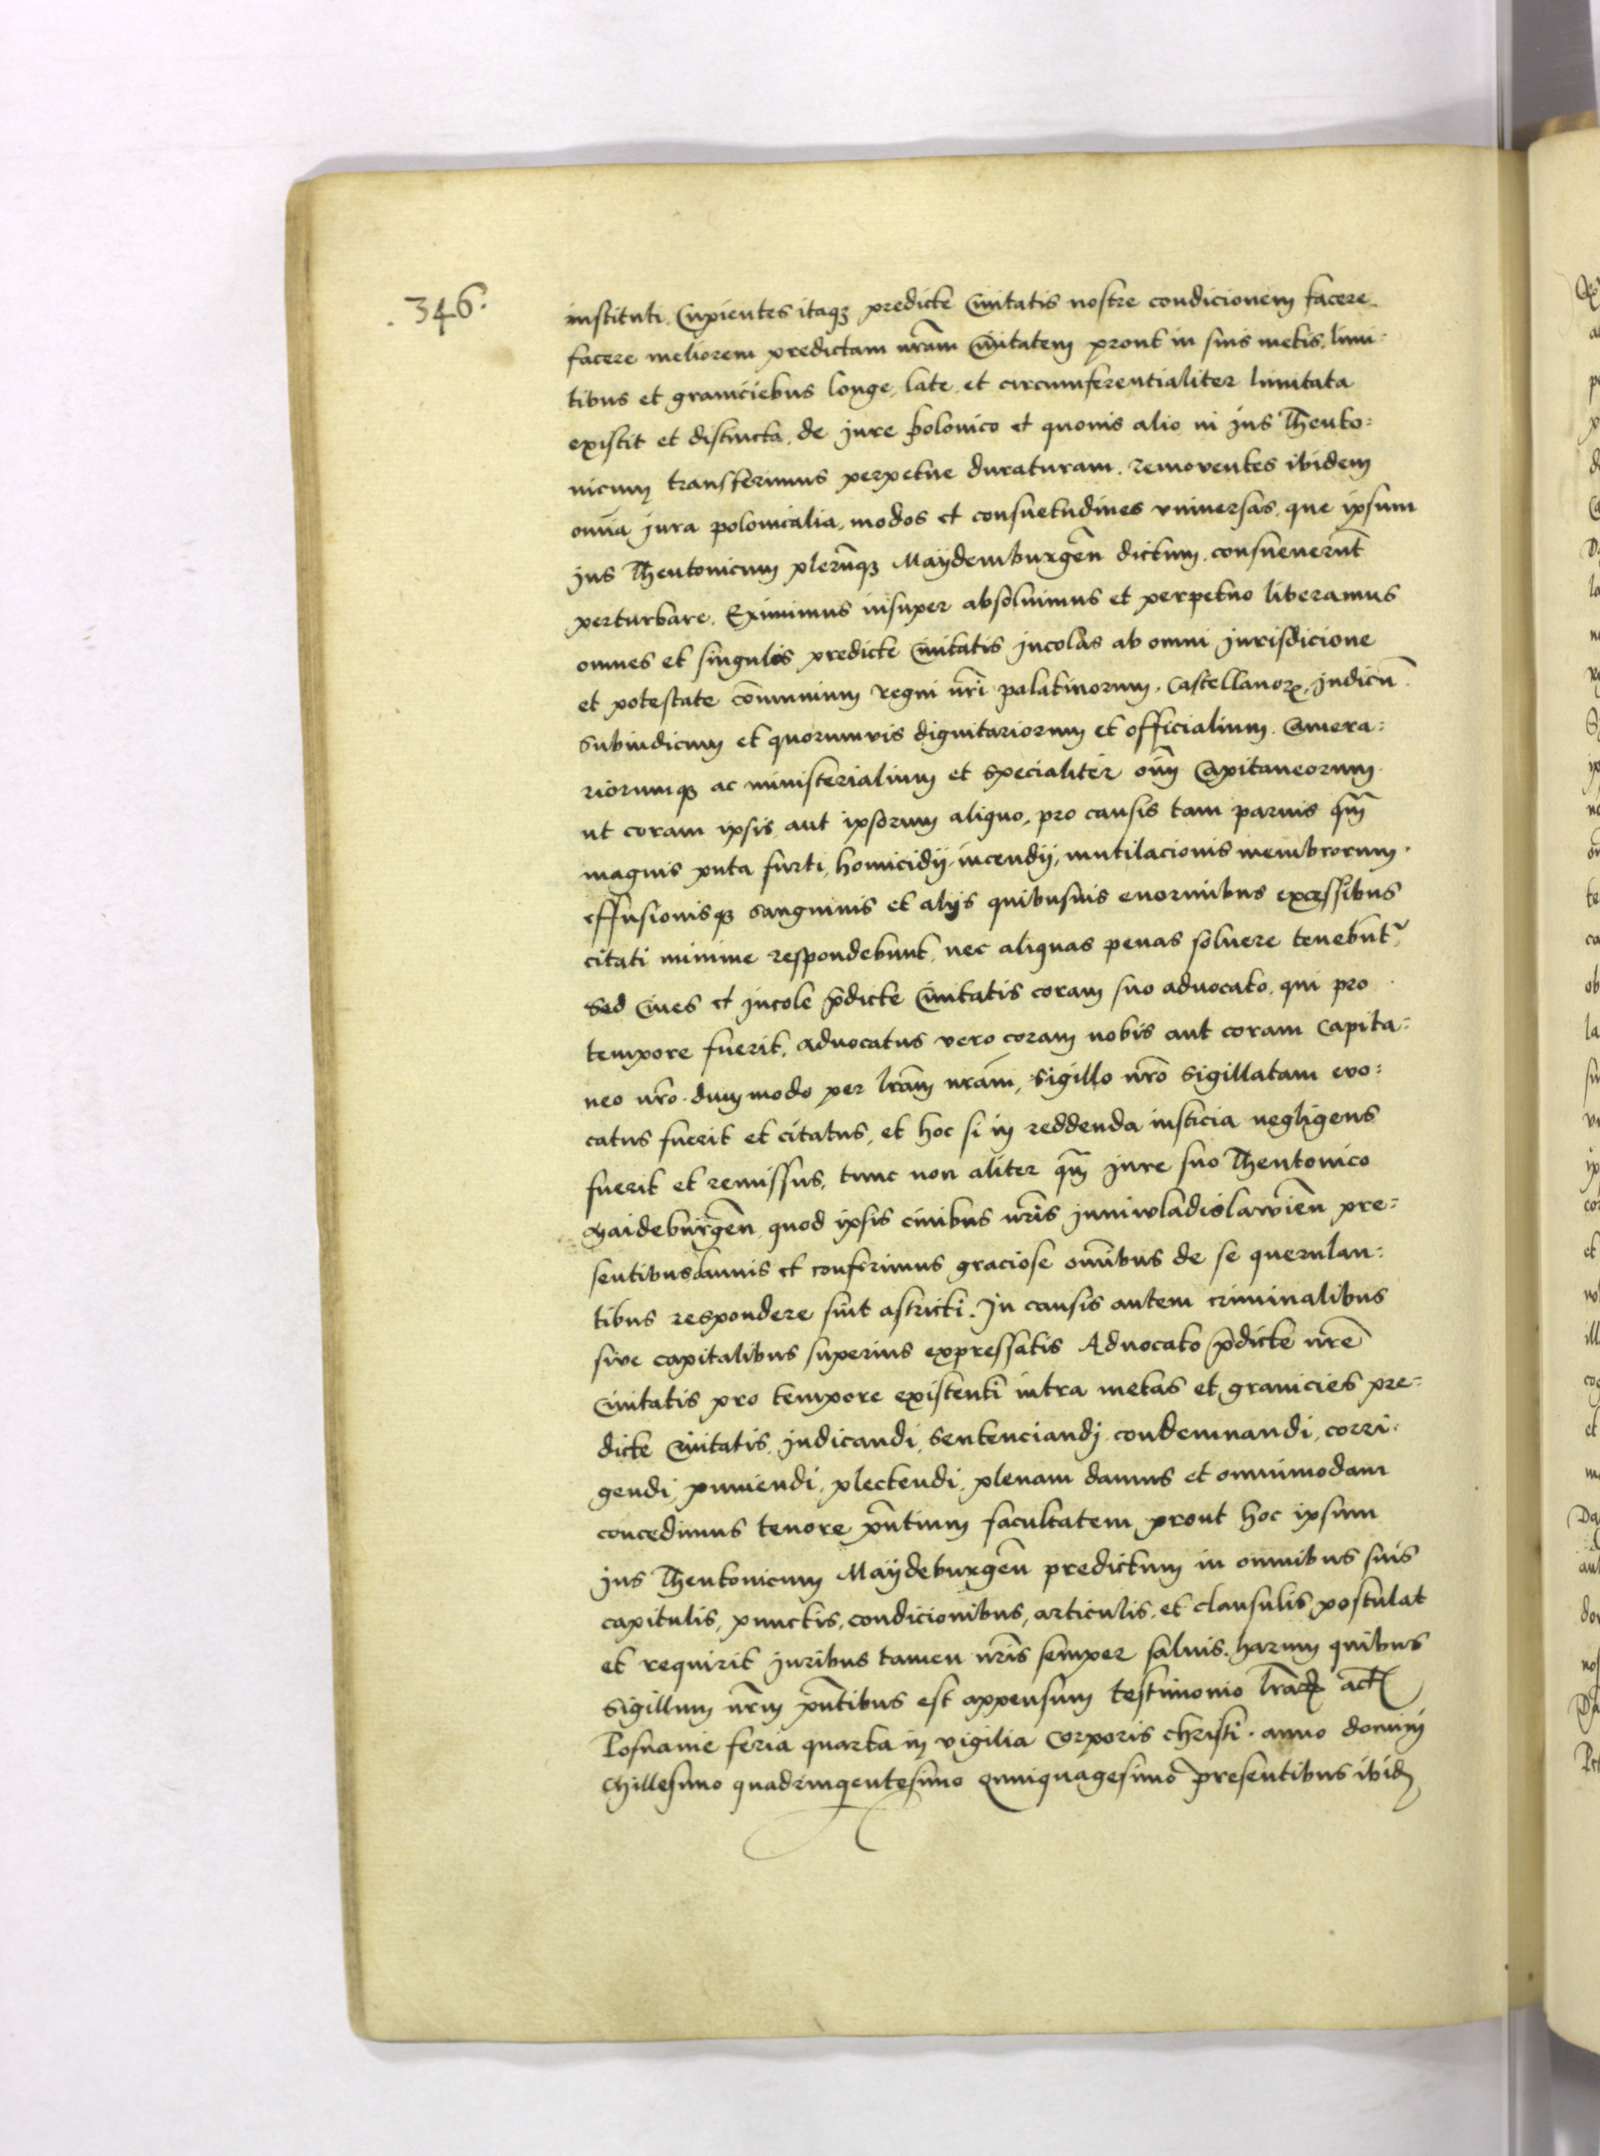 .346.
instituti. Cupientes itaqꝫ predicte Ciuitatis nostre condicionem facere
facere meliorem predictam nr̃am Ciuitatem prout in suis metis, limi-
tibus et graniciebus longe, late, et circumferentialiter limitata
existit et distincta, de jure polonico et quouis alio in jus Theuto=
nicum transferimus perpetue duraturam. remouentes ibidem
om̃ia jura polonicalia, modos et consuetudines vniuersas, que ipsum
jus Theutonicum plerũqꝫ Maÿdemburgeñ dictum, consueuerũt
perturbare. Eximimus insuper absoluimus et perpetuo liberamus
omnes et singulos predicte Ciuitatis jncolas ab omni jurisdicione
et potestate com̃unium regni nr̃i palatinorum. Castellanoꝝ, Judicũ
Subiudicum et quorumvis dignitariorum et officialium. Camera=
riorumqꝫ ac ministerialium et specialiter om̃i Capitaneorum
ut coram ipsis aut ipsorum aliquo, pro causis tam paruis qm̃
magnis puta furti, homicidÿ, incendÿ, mutilacionis membrorum.
effusionisqꝫ sanguinis et alÿs quibusuis enormibus excessibus
citati minime respondebunt, nec aliquas penas soluere tenebũt᷑
Sed Ciues et jncole p̃dicte Ciuitatis coram suo aduocato, qui pro
tempore fuerit, aduocatus vero coram nobis aut coram Capita=
neo nr̃o. dummodo per lr̃am nr̃am, sigillo nr̃o sigillatam euo=
catus fuerit et citatus, et hoc si in reddenda iusticia negligens
fuerit et remissus, tunc non aliter qm̃ jure suo Theutonico
Maideburgeñ, quod ipsis ciuibus nr̃is Juniwladislawieñ pre=
sentibus damus et conferimus graciose om̃ibus de se querulan=
tibus respondere sint astricti. In causis autem criminalibus
siue capitalibus superius expressatis Aduocato p̃dicte nr̃e
Ciuitatis pro tempore existenti intra metas et granicies pre=
dicte Ciuitatis, judicandi, sentenciandj, condemnandi, corri-
gendi, puniendi, plectendi, plenam damus et omnimodam
concedimus tenore pñtium facultatem, prout hoc ipsum
jus Theutonicum Maÿdeburgeñ predictum in omnibus suis
capitulis, punctis, condicionibus, articulis, et clausulis postulat
et requirit juribus tamen nr̃is semper saluis. harum quibus
Sigillum nr̃m pñtibus est appensum testimonio lr̃aꝝ act̃
Posnanie feria quarta in vigilia Corporis christi. anno domini
Millesimo quadringentesimo quinquagesimo presentibus ibid̃